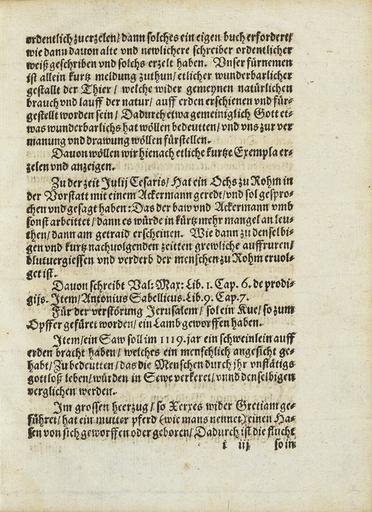 ordentlich zuerzelen/ dann solches ein eigen buch erforderet
wie dann dauon alte vnd newlichere schreiber ordentlicher
weiß geschriben vnd solchs erzelt haben. Vnser fürnemen
ist allein kurtz meldung zuthun/ etlicher wunderbarlicher
gestalt der Thier/ welche wider gemeynen natürlichen
brauch vnd lauff der natur/ auff erden erschienen vnd für-
gestellt worden sein/ Dadurch etwa gemeiniglich Gott et-
was wunderbarlichs hat wöllen bedeutten/ vnd vns zur ver
manung vnd drawung wöllen fürstellen.
Dauon wöllen wir hienach etliche kurtze Exempla er-
zelen vnd anzeigen.
Zu der zeit Julij Cesaris/ Hat ein Ochs zu Rohm in
der Vorstatt mit einem Ackermann geredt/ vnd sol gespro-
chen vnd gesagt haben: Das der baw vnd Ackermann vmb
sonst arbeittet/ dann es würde in kürtz mehr mangel an leu-
then/ dann am getraid erscheinen. Wie dann zu denselbi-
gen vnd kurtz nachuolgenden zeitten grewliche auffruren/
blutuergiessen vnd verderb der menschen zu Rohm eruol-
get ist.
Dauon schreibt Val: Max: Lib. 1. Cap. 6. de prodi-
gijs. Item/ Antonius Sabellicus Lib. 9. Cap. 7.
Für der verstörung Jerusalem/ sol ein Kue/ so zum
Opffer gefüret worden/ ein Lamb geworffen haben.
Item/ ein Saw soll im 1119. jar ein schweinlein auff
erden bracht haben/ welches ein menschlich angesicht ge-
habt/ Zubedeutten/ das die Menschen durch jhr vnflätigs
gottloß leben/ würden in Sewe verkeret/ vnnd denselbigen
verglichen werden.
Im grossen heerzug/ so Xerxes wider Gretiam ge-
führet/ hat ein mutter pferd (wie mans nennet) einen Ha-
sen von sich geworffen oder geboren/ Dadurch ist die flucht
i iij so in